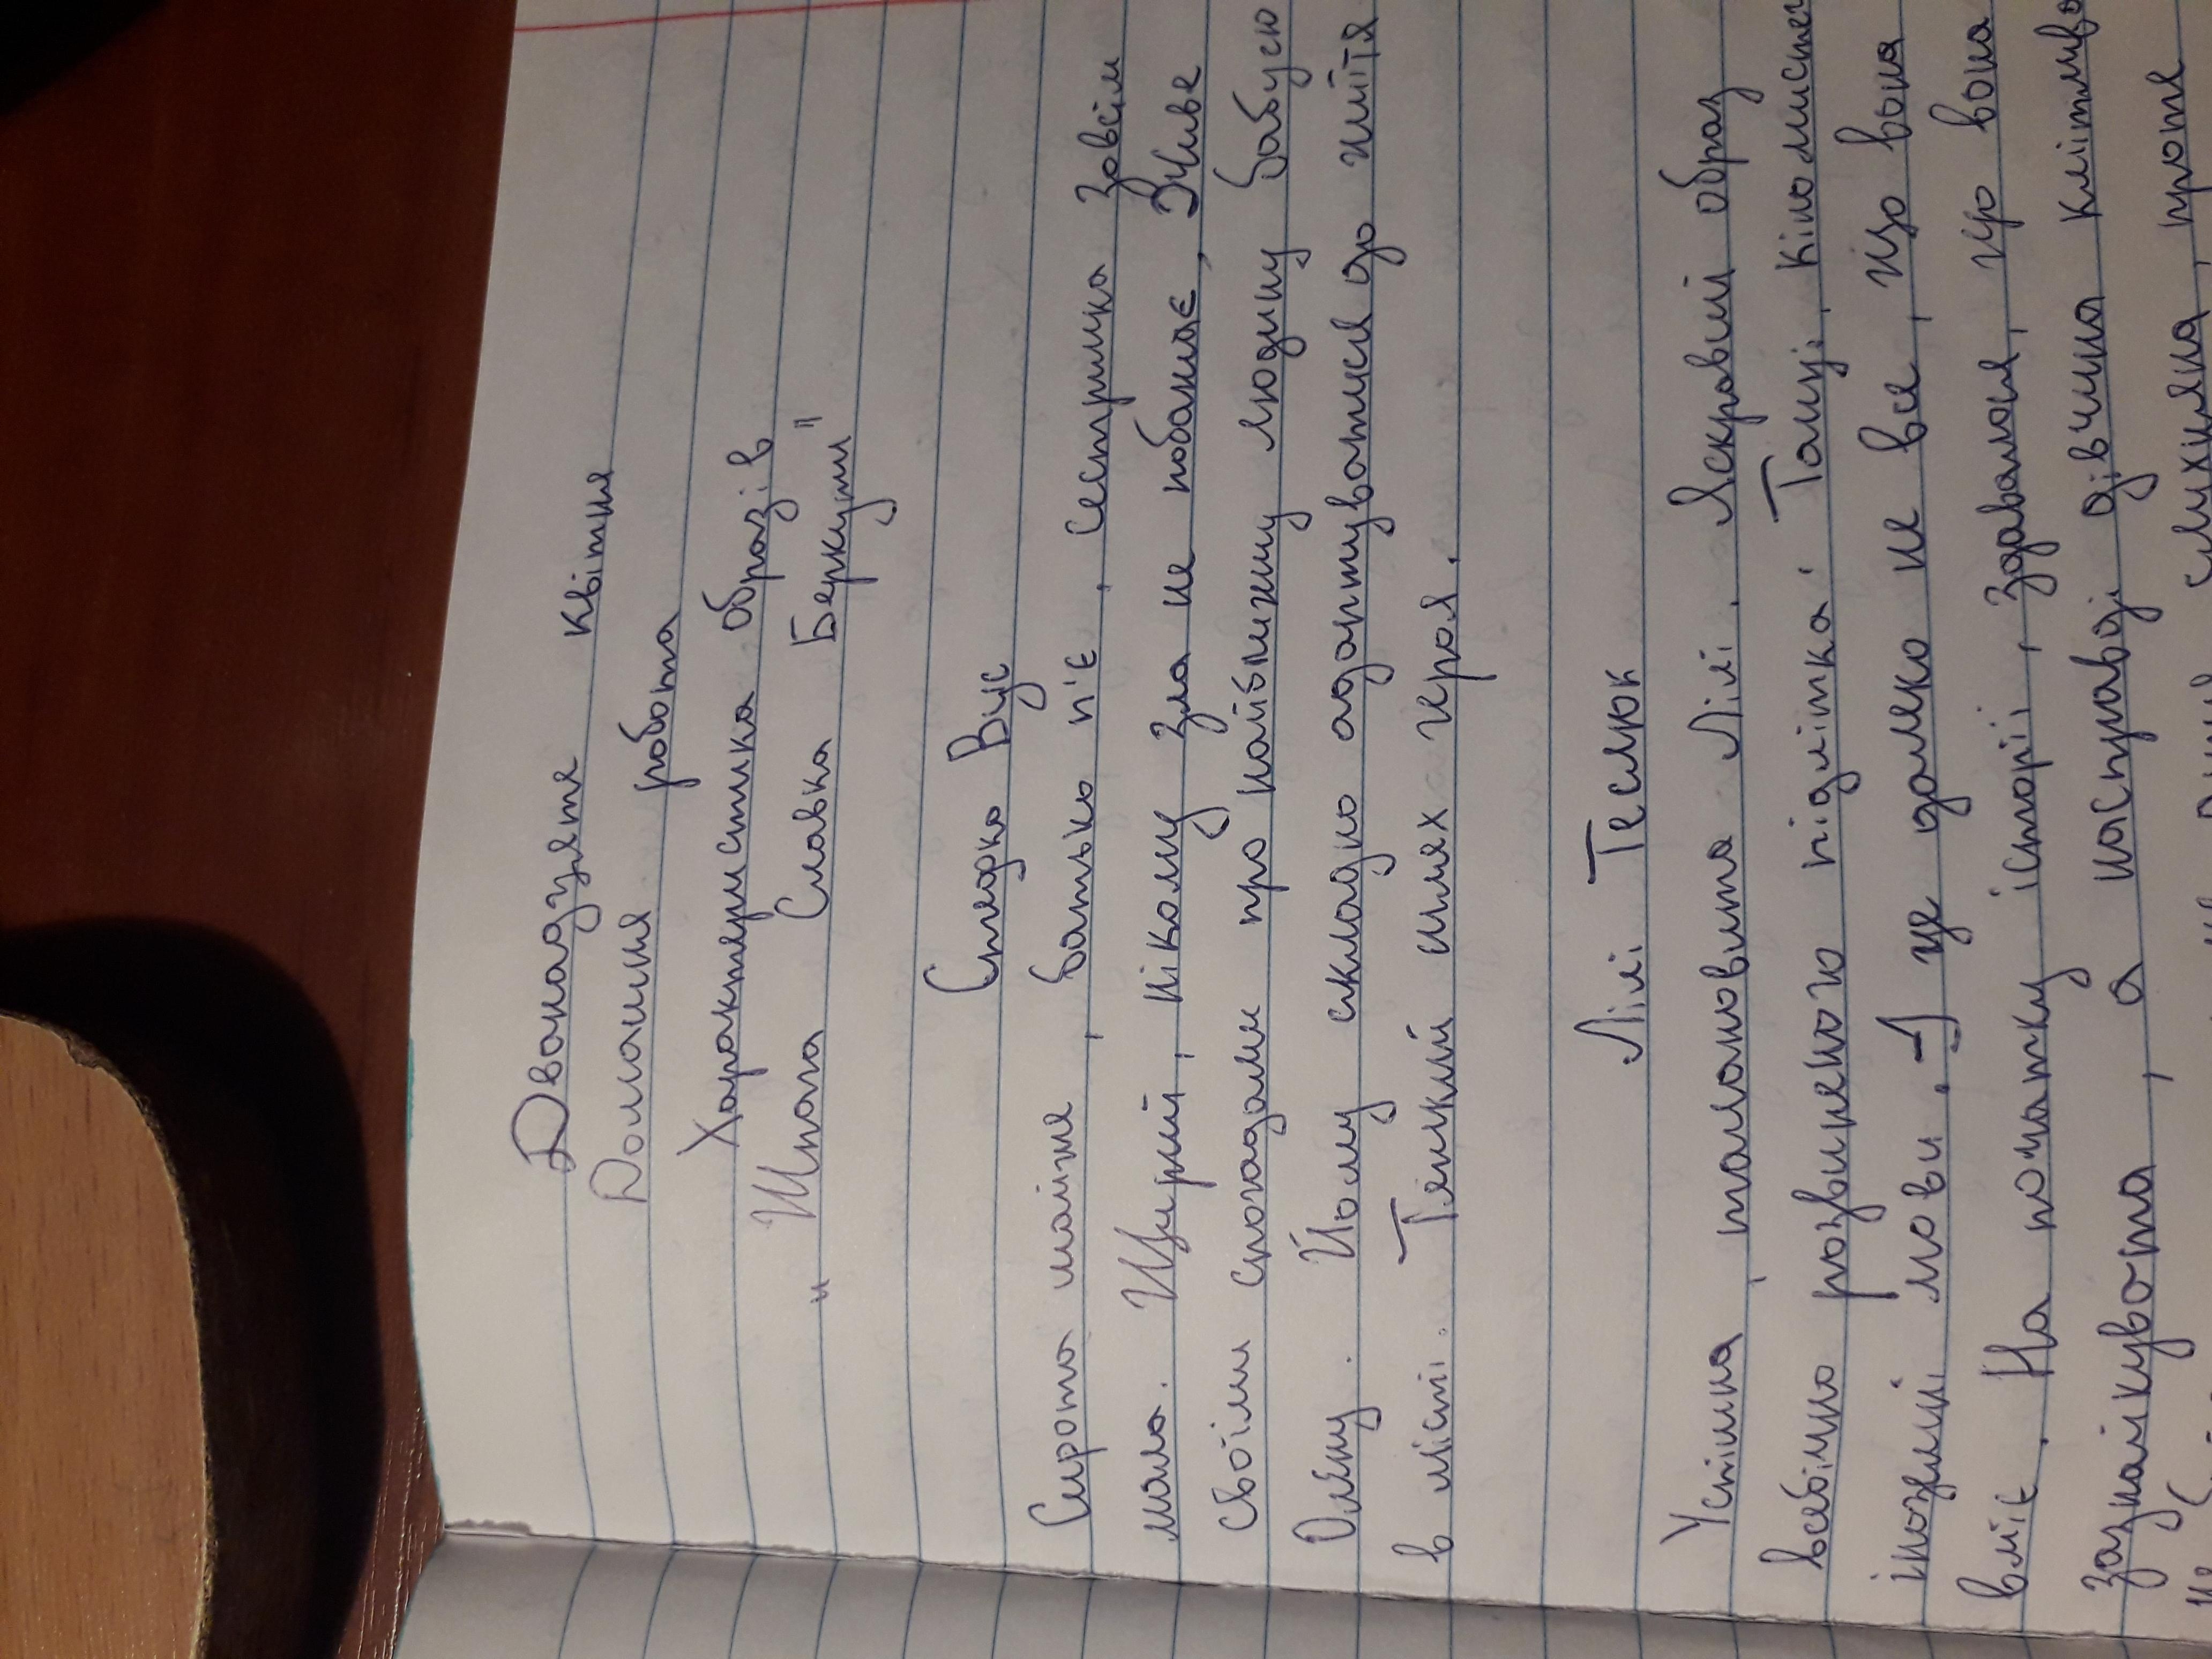 Дванадцяте квітня
Домашня робота
Характеристика образів
"Шпага Славка Беркути"
Стефко Вус
Сирота майже, батько п'є, сестричка зовсім
мала. Щирий, нікому зла не побажає, Живе
своїми спогадами про найближчу людину бабусю
Олену. Йому складно адаптуватися до життя
в місті. Тяжкий шлях героя.
Лілі Теслюк
Успішна, талановита Лілі. Яскравий образ
всебічно розвиненого підлітка. Танці, кіномистец
іноземні мови. І це далеко не все, що вона
вміє. На початку історії, здавалося, що вона
зазнайкувата, а насправді дівчина кмітлива
схиляна, проте